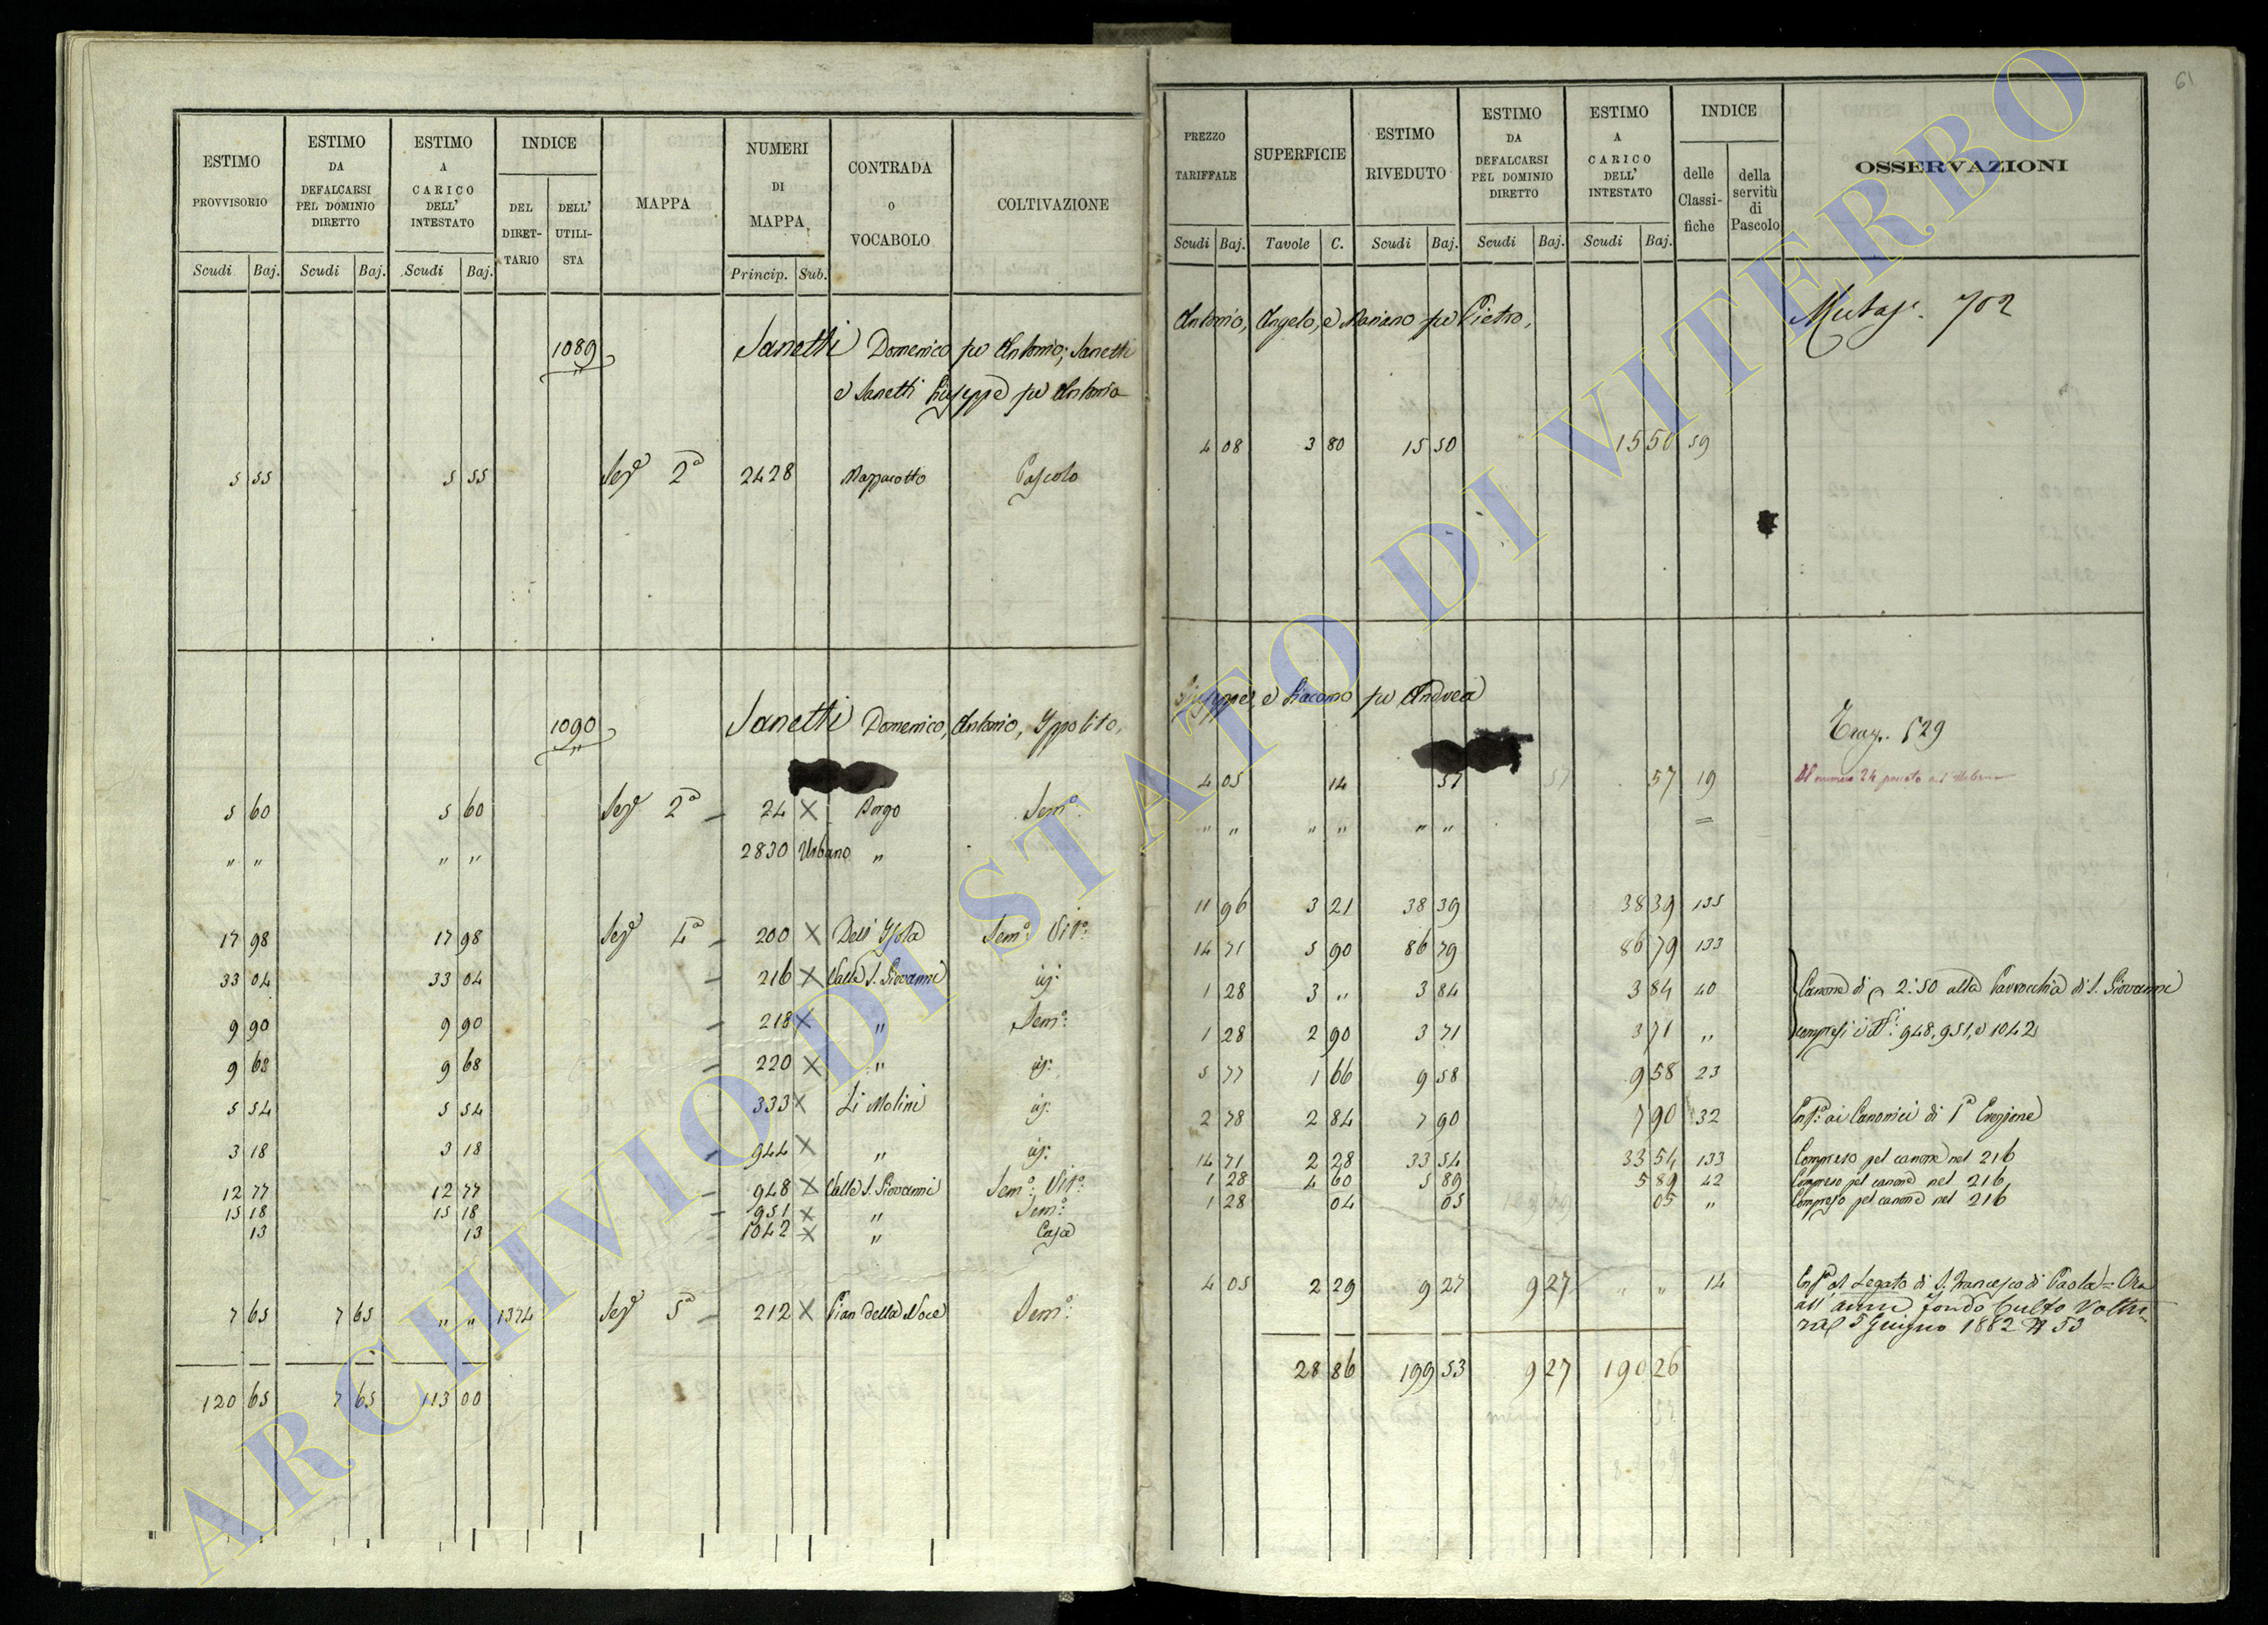 61
ESTIMO PROVVISORIO | ESTIMO DA DEFALCARSI PEL DOMINIO DIRETTO | ESTIMO A CARICO DELL' INTESTATO | INDICE | MAPPA | NUMERI DI MAPPA | CONTRADA O VOCABOLO | COLTIVAZIONE
DEL DIRETTARIO | DELL' UTILISTA
Scudi | Baj. | Scudi | Baj. | Scudi | Baj. | Princip. | Sub.
1089 Sanetti Domenico fu Antonio; Sanetti
e Sanetti Giuseppe fu Antonio
5 55 | 5 55 | Sez.e 2a | 2428 | Mazzacotto | Pascolo
1090 Sanetti Domenico, Antonio, Yppolito,
5 60 | 5 60 | Sez.e 2a | 24 X | Borgo | Sem.o
" " | " " | 2830 Urbano | "
17 98 | 17 98 | Sez.e 4a | 200 X | Dell' Ysola | Sem.o Vit.o
33 04 | 33 04 | 216 X | Valle S. Giovanni | id.
9 90 | 9 90 | 218 X | " | Sem.o
9 68 | 9 68 | 220 X | " | id.
5 54 | 5 54 | 333 X | Li Molini | id.
3 18 | 3 18 | 944 X | " | id.
12 77 | 12 77 | 948 X | Valle S. Giovanni | Sem.o Vit.o
15 18 | 15 18 | 951 X | " | Sem.o
13 | 13 | 1042 X | " | Casa
7 65 | 7 65 | " " | 1374 | Sez.e 5a | 212 X | Pian della Noce | Sem.o
120 65 | 7 65 | 113 00
PREZZO TARIFFALE | SUPERFICIE | ESTIMO RIVEDUTO | ESTIMO DA DEFALCARSI PEL DOMINIO DIRETTO | ESTIMO A CARICO DELL' INTESTATO | INDICE | OSSERVAZIONI
delle Classifiche | della servitù di Pascolo
Scudi | Baj. | Tavole | C. | Scudi | Baj. | Scudi | Baj. | Scudi | Baj.
Antonio, Angelo, e Mariano fu Pietro,
702
4 08 | 3 80 | 15 50 | 15 50 | 59
Giuseppe, e Giacomo fu Andrea
529
4 05 | 14 | 57 | 57 | 57 | 19 | Il numero 24 passato all' Urbano
" " | " " | " "
11 96 | 3 21 | 38 39 | 38 39 | 135
14 71 | 5 90 | 86 79 | 86 79 | 133
1 28 | 3 " | 3 84 | 3 84 | 40 | Canone di 2:50 alla Parrocchia di S. Giovanni
1 28 | 2 90 | 3 71 | 3 71 | " | compresi i N.i 948, 951, e 1042
5 77 | 1 66 | 9 58 | 9 58 | 23
2 78 | 2 84 | 7 90 | 7 90 | 32 | Enf.a ai Canonici di 1a Erezione
14 71 | 2 28 | 33 54 | 33 54 | 133 | Compreso pel canone nel 216
1 28 | 4 60 | 5 89 | 5 89 | 42 | Compreso pel canone nel 216
1 28 | 04 | 05 | 05 | " | Compreso pel canone nel 216
4 05 | 2 29 | 9 27 | 9 27 | " " | 14 | Enf.a al Legato di S. Francesco di Paola = Ora
all' fondo Culto
5 Giugno 1882 N 53
28 86 | 199 53 | 9 27 | 190 26
ARCHIVIO DI STATO DI VITERBO